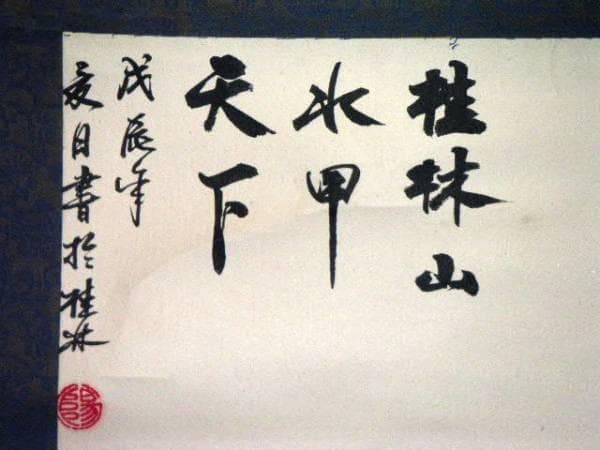 桂林山
水甲
天下
戊辰年
夏日書於桂林